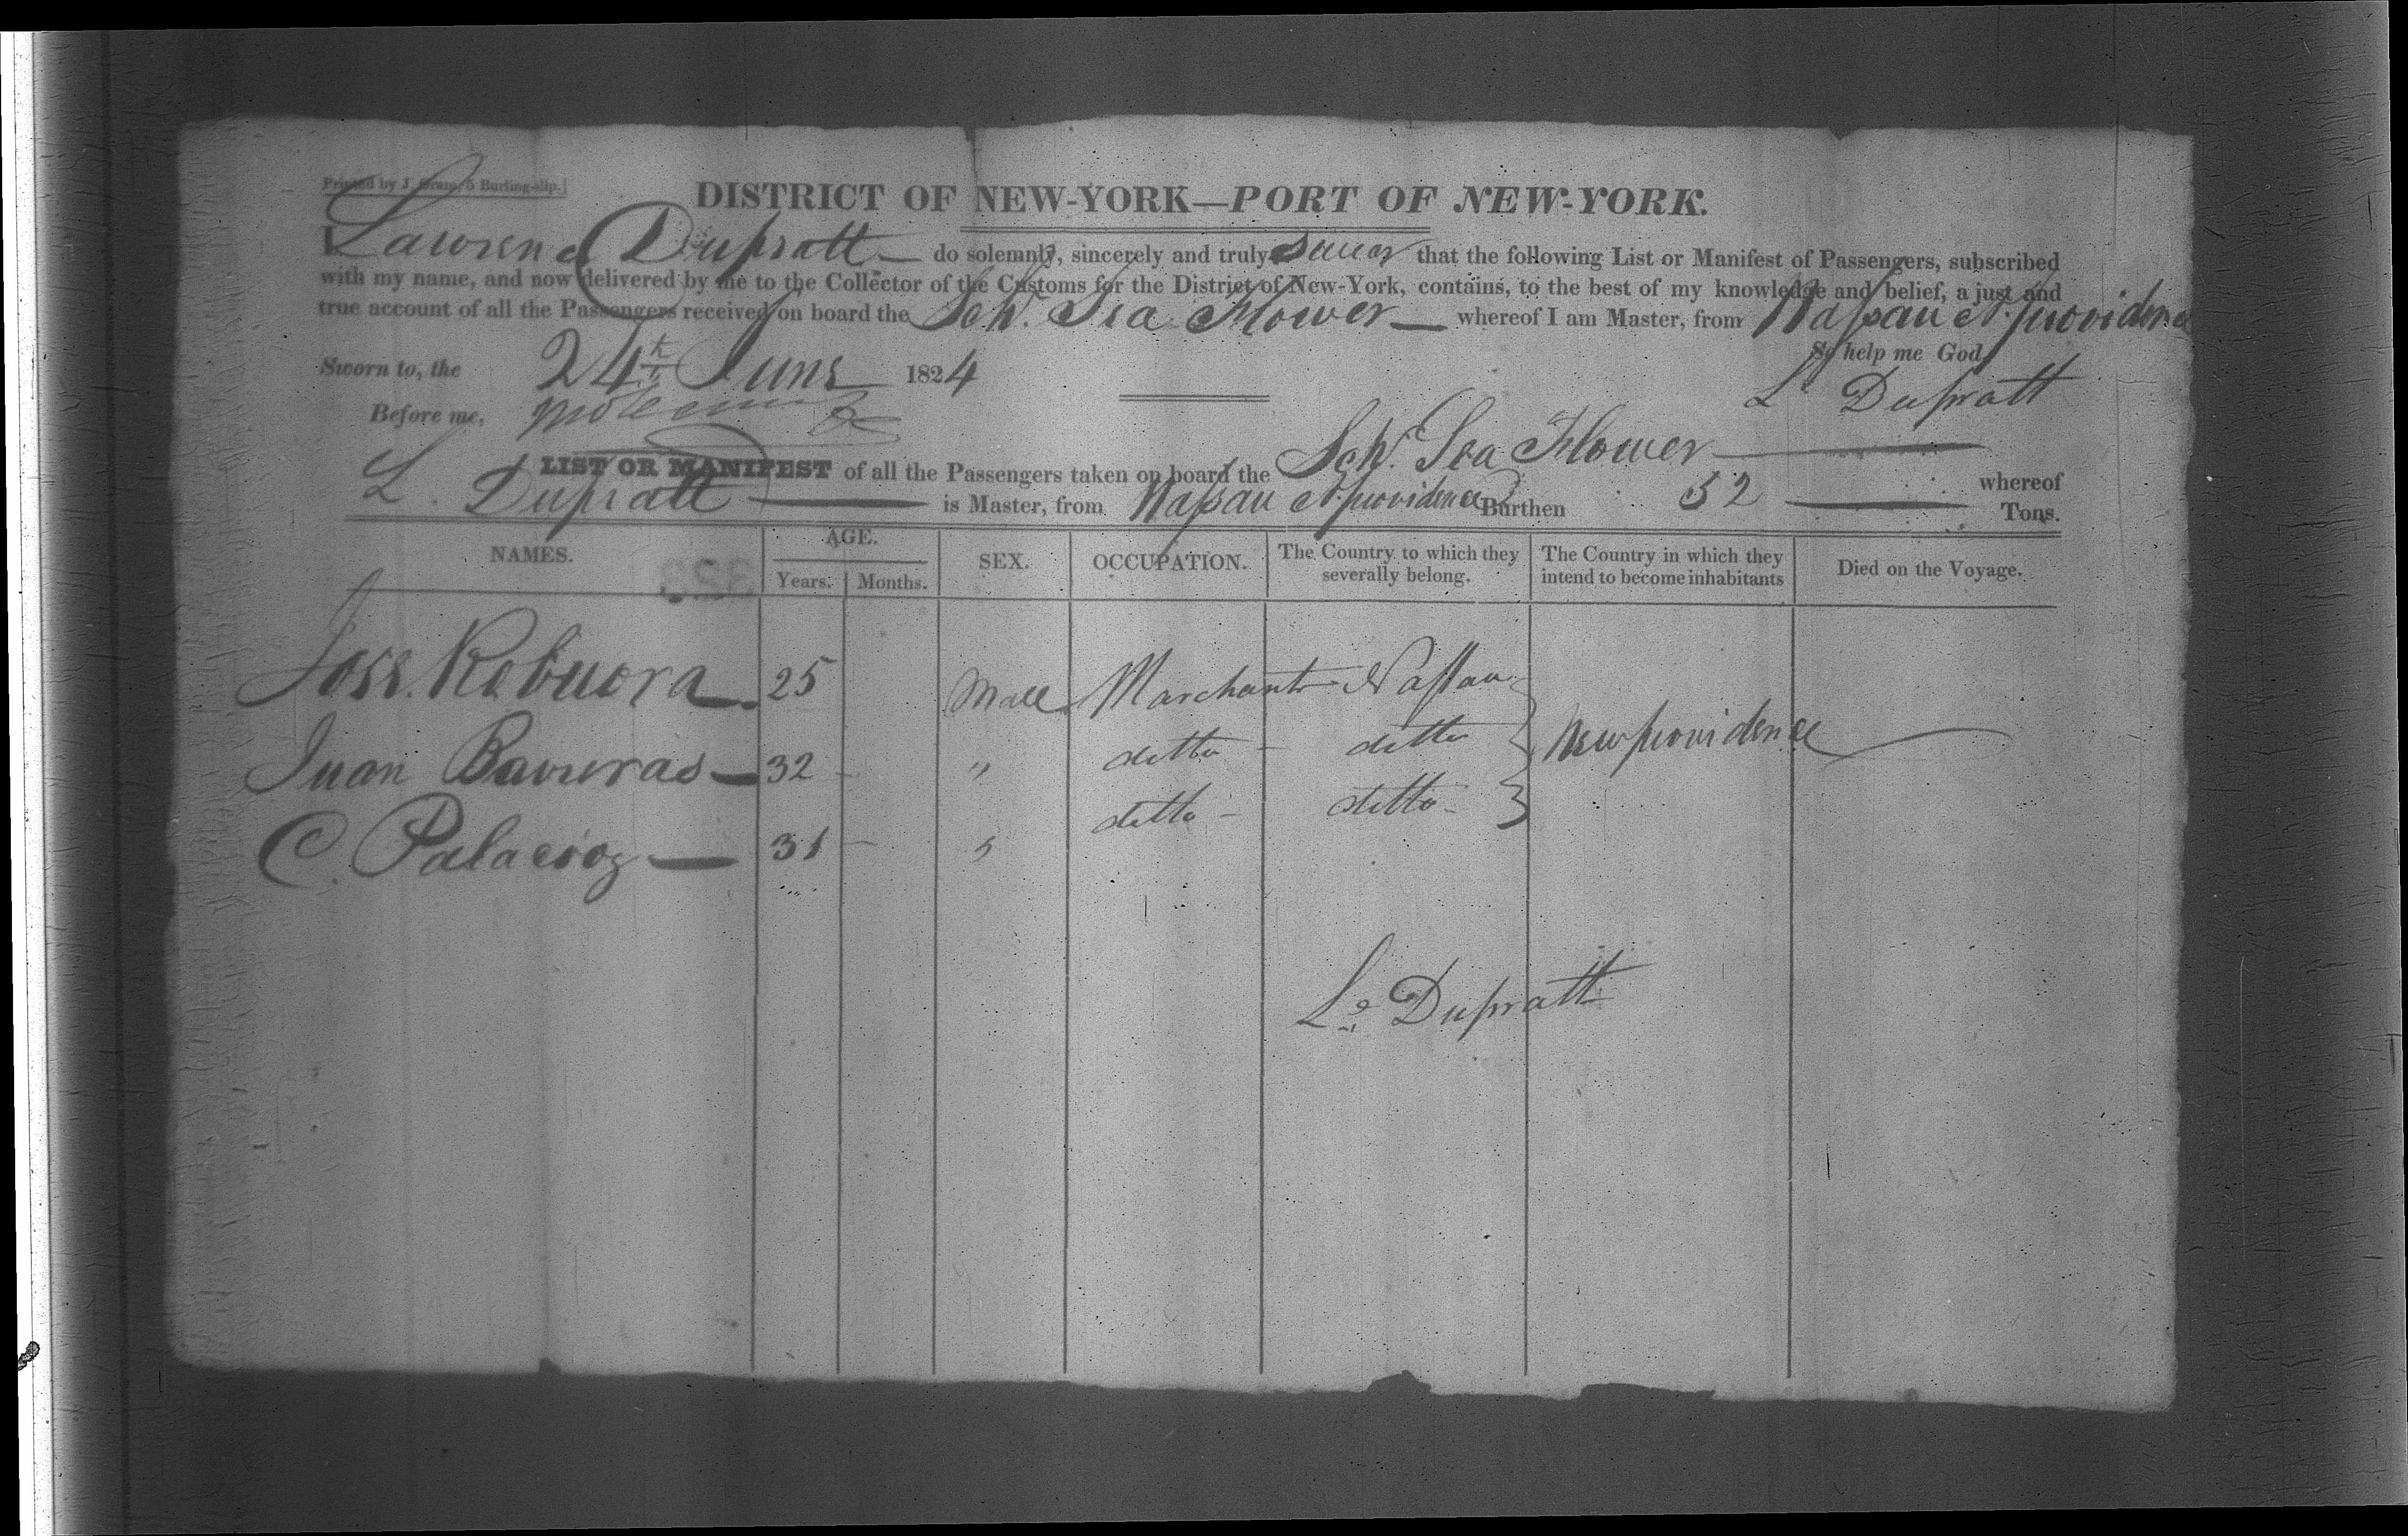 Printed by J. Gram, 5 Burling-slip.]
DISTRICT OF NEW-YORK—PORT OF NEW-YORK.
I Lawrence Dupratt — do solemnly, sincerely and truly swear that the following List or Manifest of Passengers, subscribed
with my name, and now delivered by me to the Collector of the Customs for the District of New-York, contains, to the best of my knowledge and belief, a just and
true account of all the Passengers received on board the Schr. Sea Flower — whereof I am Master, from Nassau N. providence
So help me God.
Sworn to, the 24th June 1824
L Dupratt
Before me,
LIST OR MANIFEST of all the Passengers taken on board the Schr. Sea Flower — whereof
L. Dupratt — is Master, from Nassau N. providence Burthen 52 — Tons.
NAMES. AGE. SEX. OCCUPATION. The Country to which they severally belong. The Country in which they intend to become inhabitants Died on the Voyage.
Years. Months.
Jose. 25 Male Marchant Nassau
Juan 32 — " ditto — ditto Newprovidence
C. Palacioz — 31 — " ditto — ditto
Le Dupratt